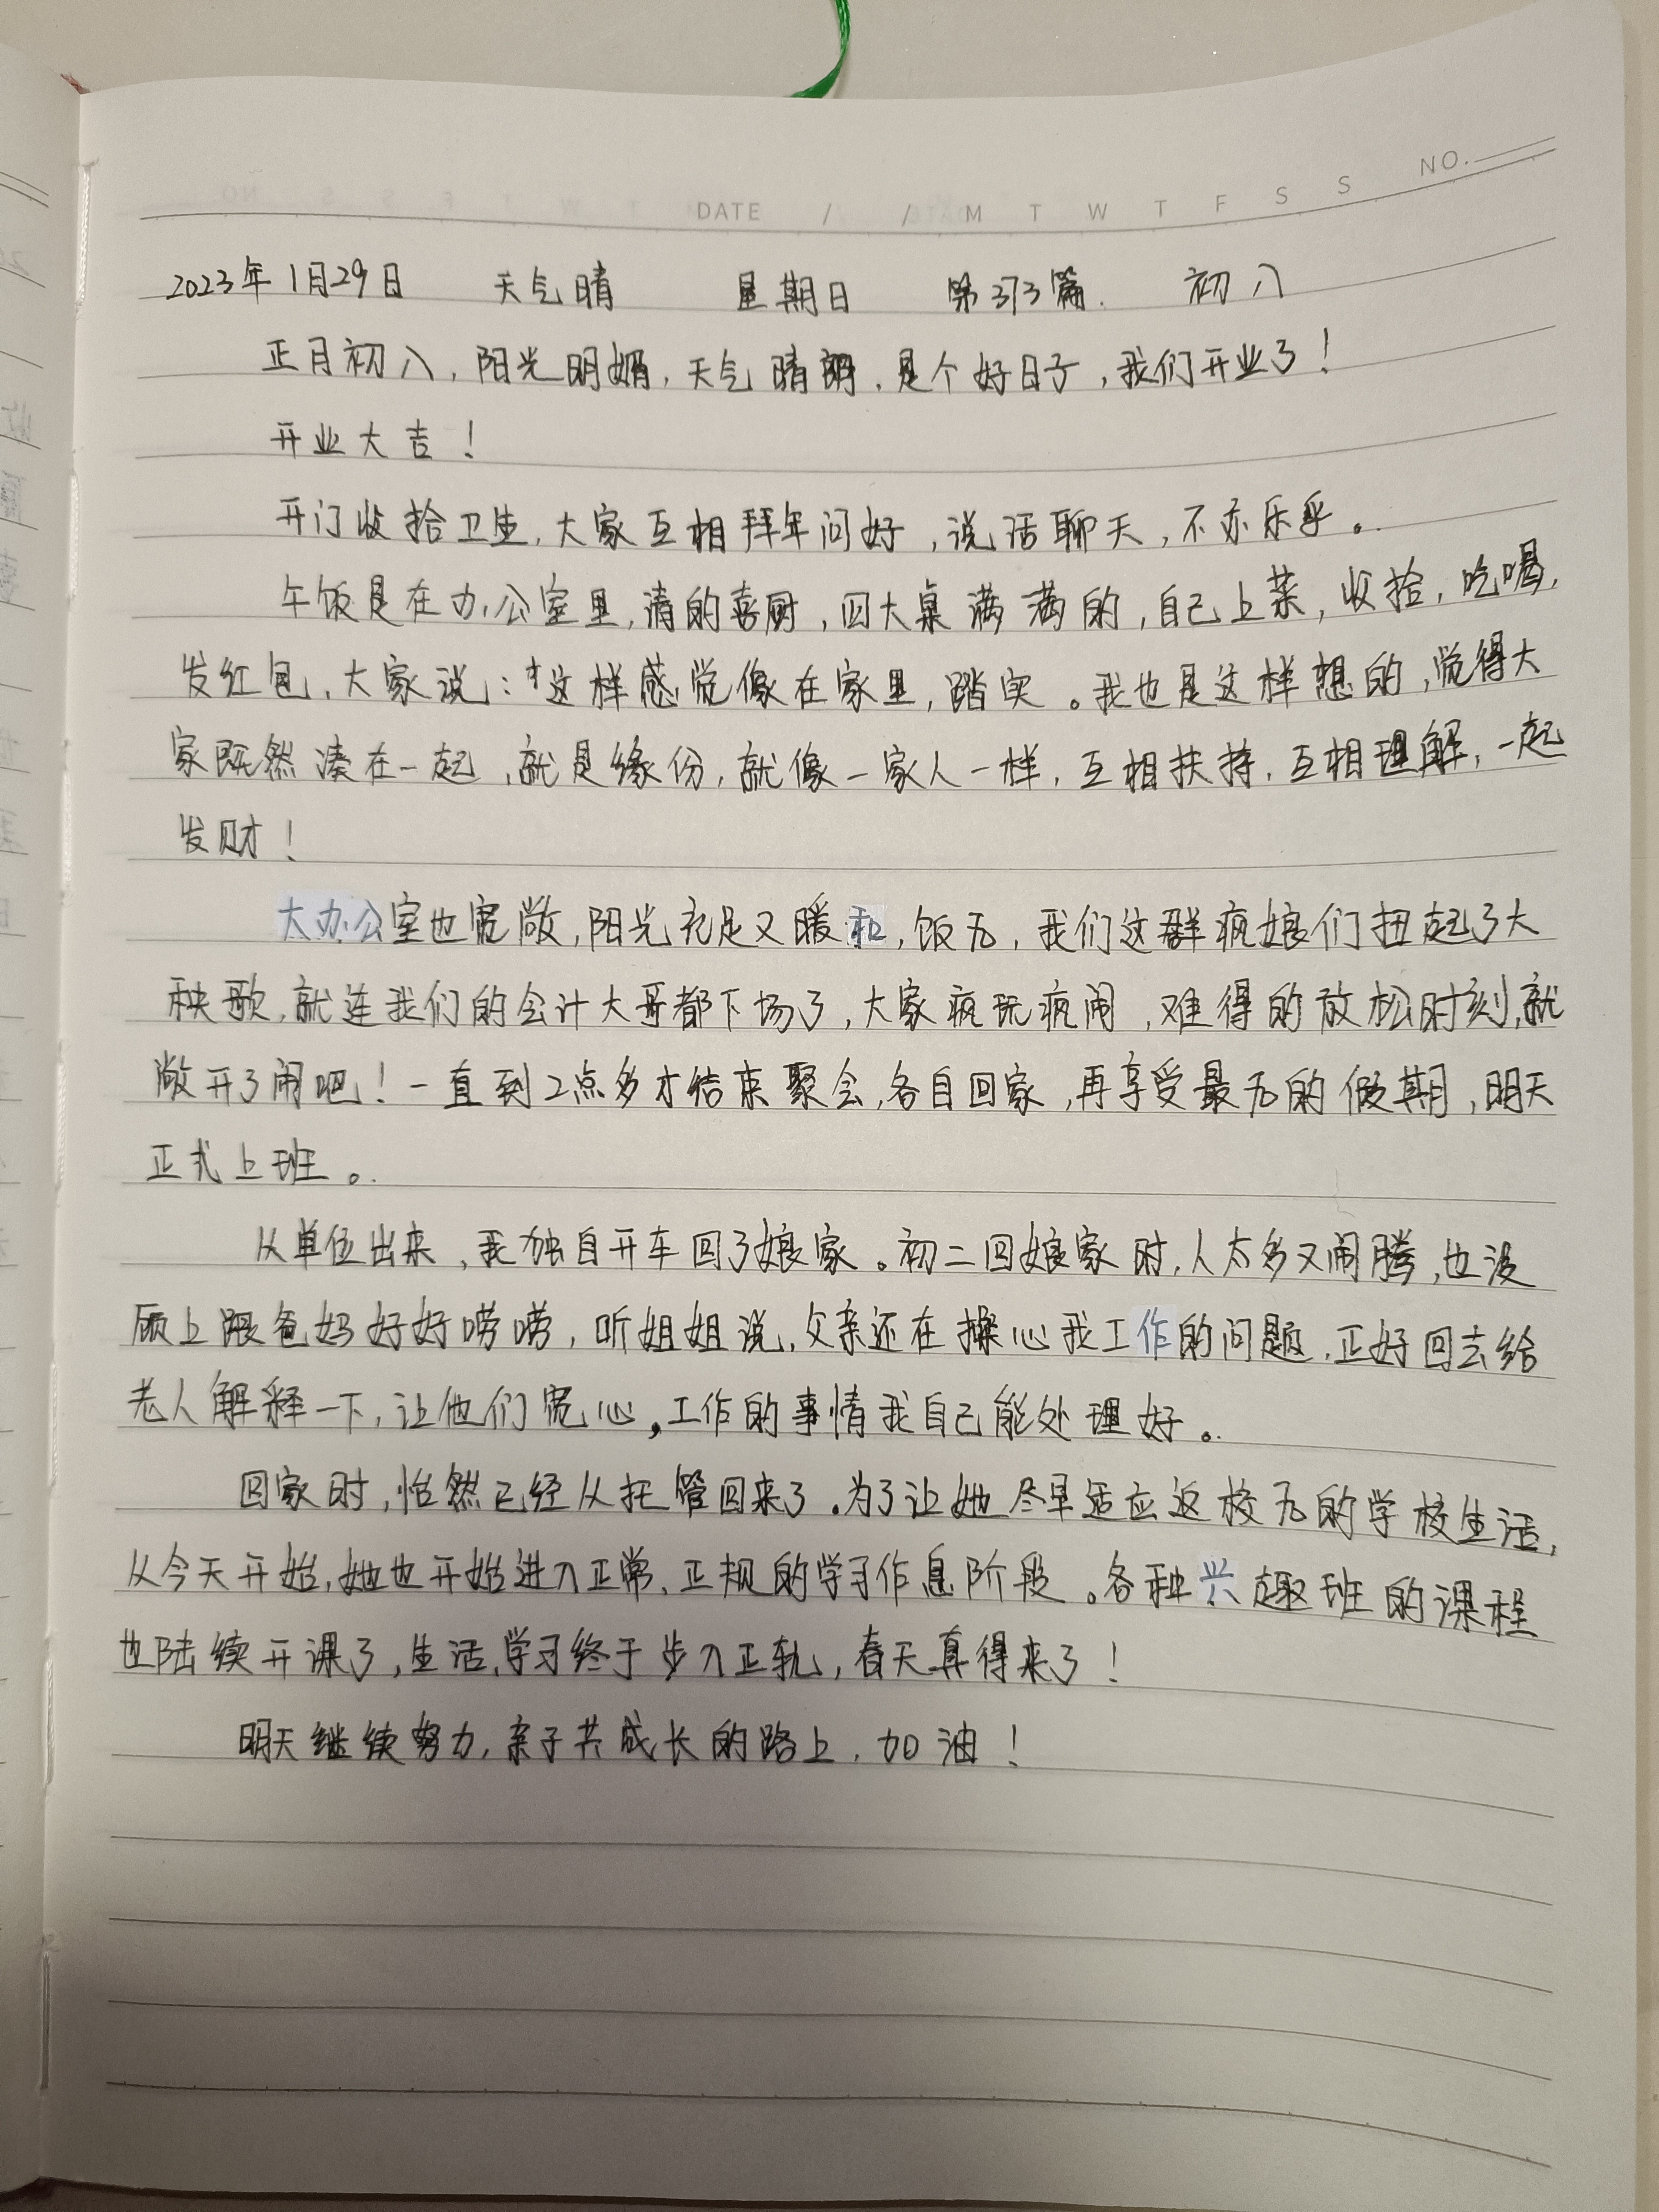 NO.
DATE / / M T W T F S S
2023年1月29日 天气晴 星期日 第373篇. 初八
正月初八,阳光明媚,天气晴朗,是个好日子,我们开业了!
开业大吉!
开门收拾卫生,大家互相拜年问好,说话聊天,不亦乐乎。
午饭是在办公室里,请的喜厨,四大桌满满的,自己上菜,收拾,吃喝,
发红包,大家说:“这样感觉像在家里,踏实。我也是这样想的,觉得大
家既然凑在一起,就是缘份,就像一家人一样,互相扶持,互相理解,一起
发财!
大办公室也宽敞,阳光充足又暖和,饭后,我们这群疯娘们扭起了大
秧歌,就连我们的会计大哥都下场了,大家疯玩疯闹,难得的放松时刻,就
敞开了闹吧!一直到2点多才结束聚会,各自回家,再享受最后的假期,明天
正式上班。
从单位出来,我独自开车回了娘家。初二回娘家时,人太多又闹腾,也没
顾上跟爸妈好好唠唠,听姐姐说,父亲还在操心我工作的问题,正好回去给
老人解释一下,让他们宽心,工作的事情我自己能处理好。
回家时,怡然已经从托管回来了。为了让她尽早适应返校后的学校生活,
从今天开始,她也开始进入正常、正规的学习作息阶段。各种兴趣班的课程
也陆续开课了,生活、学习终于步入正轨,春天真得来了!
明天继续努力,亲子共成长的路上,加油!